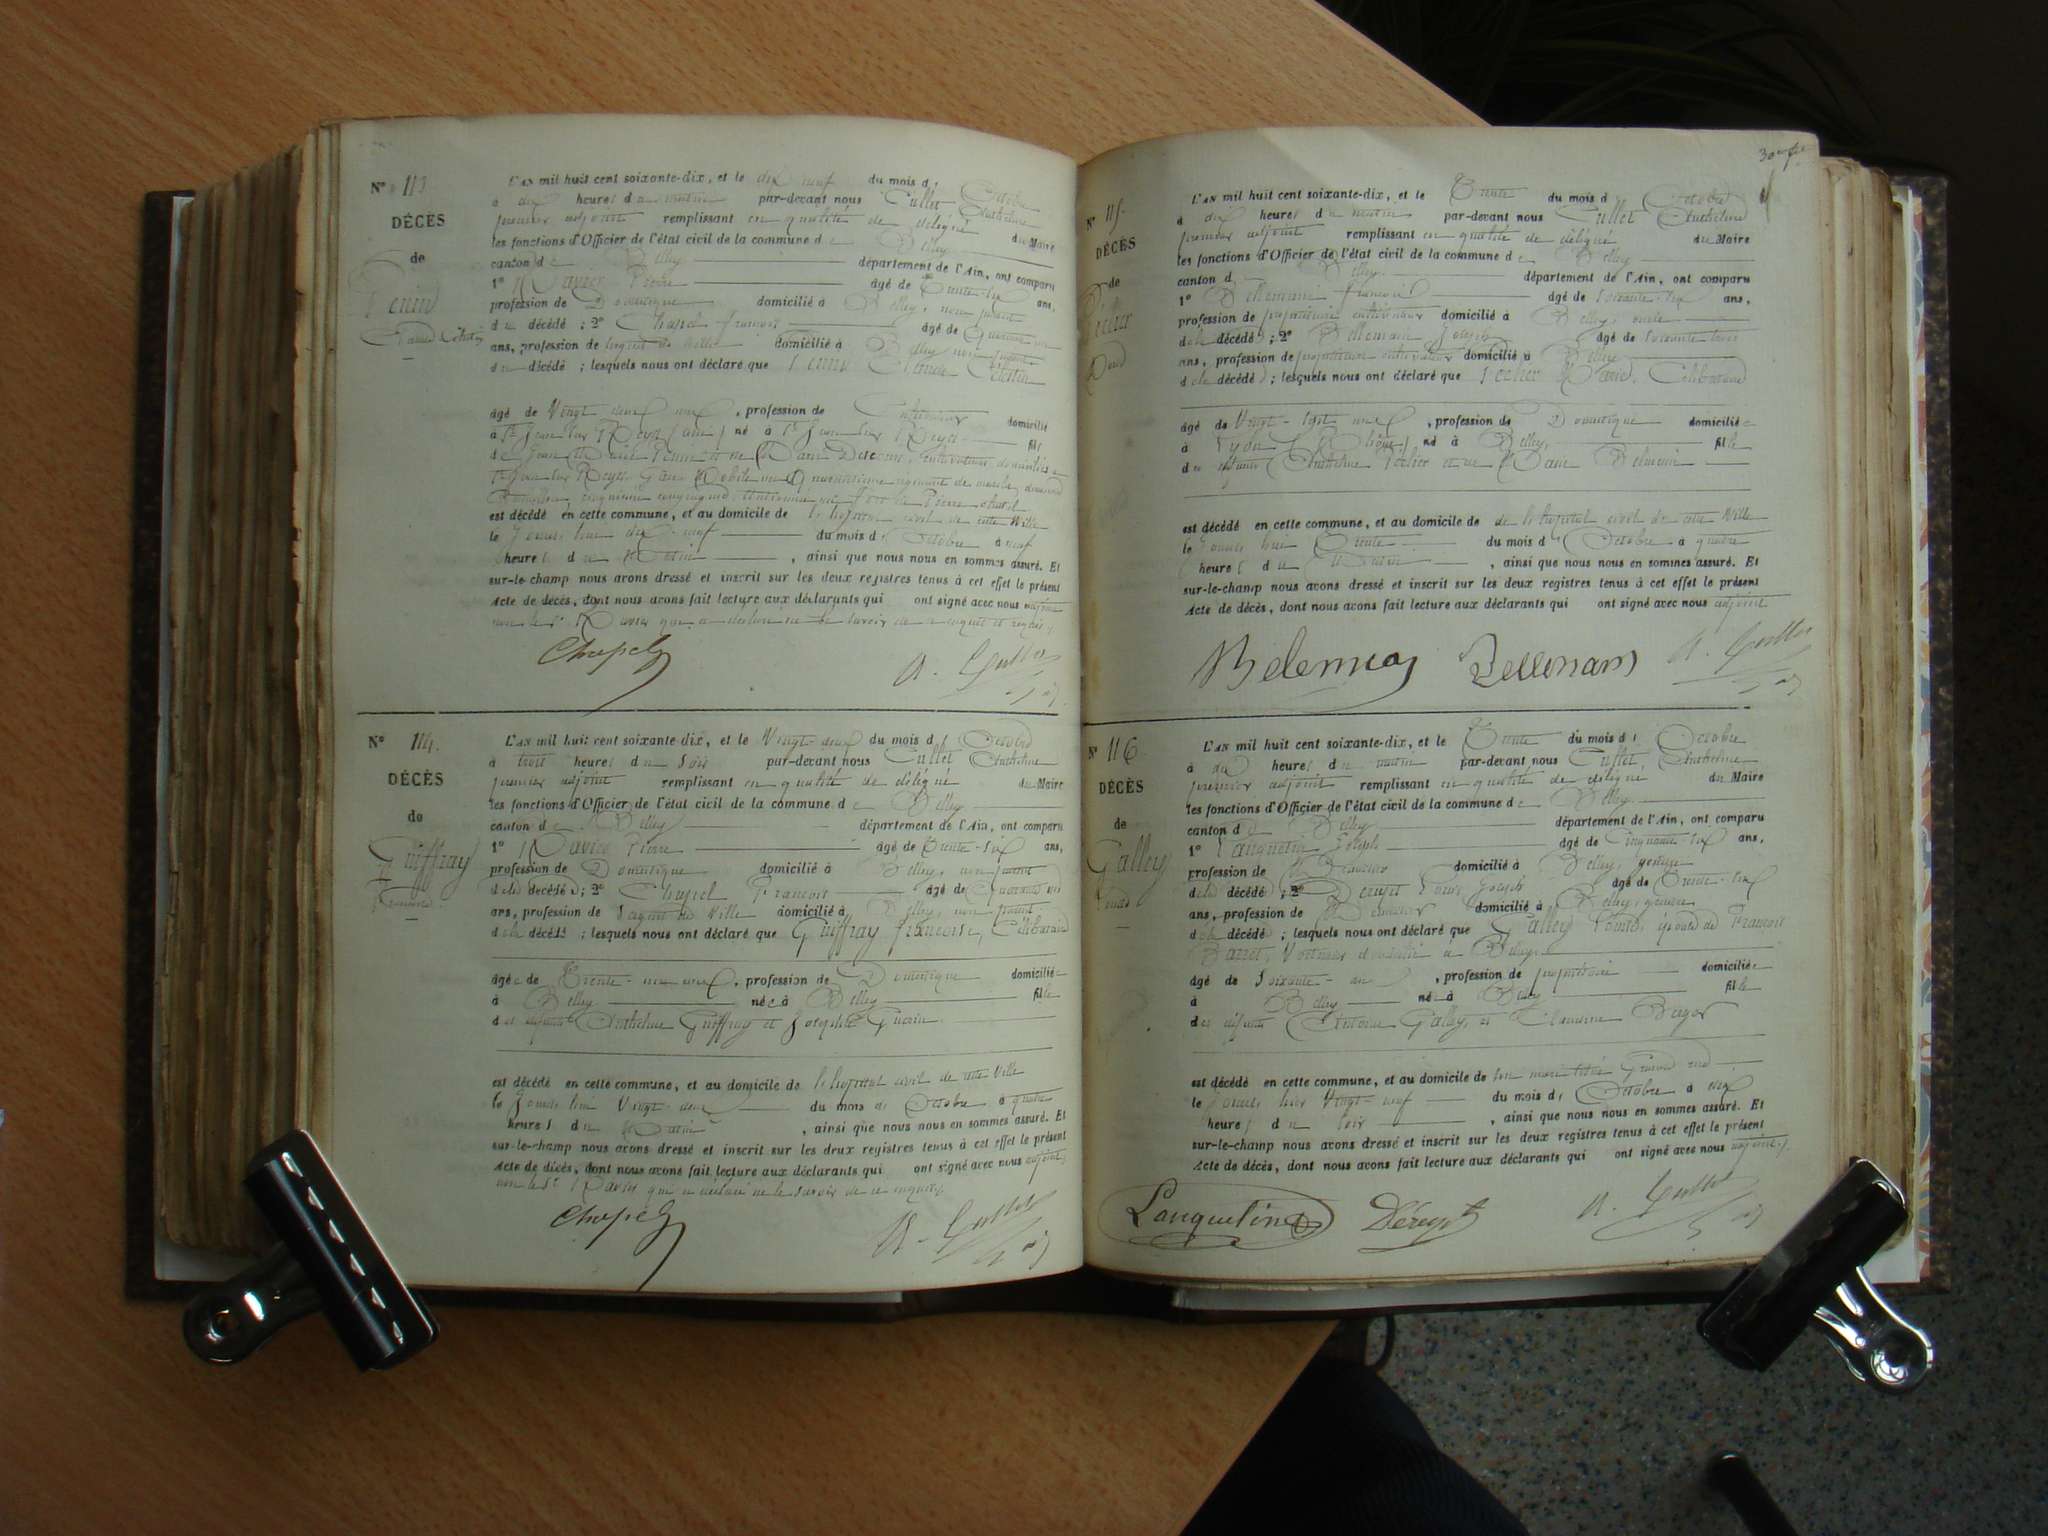 N° 113
DÉCÈS
de
Penin
Claude Célestin
L'AN mil huit cent soixante-dix, et le dix neuf du mois d' Octobre
à dix heures du matin par-devant nous Cullet Anthelme
premier adjoint remplissant en qualité de délégué du Maire
les fonctions d'Officier de l'état civil de la commune de Belley
canton de Belley département de l'Ain, ont comparu
1° Pierre âgé de trente-six ans,
profession de Domestique domicilié à Belley, non parent
du décédé ; 2° Chapel françois âgé de Quarante
ans, profession de Sergent de Ville domicilié à Belley non parent
du décédé ; lesquels nous ont déclaré que Penin Claude Célestin
âgé de Vingt deux ans, profession de Cultivateur domicilié
à St Jean sur Reyssouze (ain) né à St Jean sur Reyssouze fils
de Jean Penin et de Marie cultivateurs domiciliés à
St Jean sur Reyssouze Garde Mobile au régiment de marche
Bataillon, cinquième compagnie
est décédé en cette commune, et au domicile de l'hôpital civil de cette Ville
le Jourd'hui dix-neuf du mois d' Octobre à neuf
heures du Matin, ainsi que nous nous en sommes assuré. Et
sur-le-champ nous avons dressé et inscrit sur les deux registres tenus à cet effet le présent
Acte de décès, dont nous avons fait lecture aux déclarants qui ont signé avec nous adjoint
non le Sr qui a déclaré ne le savoir de ce enquis et requis.
Chapel A. Cullet
N° 114.
DÉCÈS
de
Guiffray
Françoise
L'AN mil huit cent soixante-dix, et le Vingt-deux du mois d' Octobre
à trois heures du Soir par-devant nous Cullet Anthelme
premier adjoint remplissant en qualité de délégué du Maire
les fonctions d'Officier de l'état civil de la commune de Belley
canton de Belley département de l'Ain, ont comparu
1° Pierre âgé de Trente-six ans,
profession de Domestique domicilié à Belley, non parent
de la décédée ; 2° Chapel François âgé de Quarante
ans, profession de Sergent de Ville domicilié à Belley, non parent
de la décédée ; lesquels nous ont déclaré que Guiffray françoise, Célibataire
âgée de Trente-un ans, profession de Domestique domiciliée
à Belley née à Belley fille
des défunts Anthelme Guiffray et Josephte
est décédé en cette commune, et au domicile de l'hôpital civil de cette Ville
le Jourd'hui Vingt-deux du mois d' Octobre à quatre
heures du Matin, ainsi que nous nous en sommes assuré. Et
sur-le-champ nous avons dressé et inscrit sur les deux registres tenus à cet effet le présent
Acte de décès, dont nous avons fait lecture aux déclarants qui ont signé avec nous adjoint,
non le Sr qui a déclaré ne le savoir de ce enquis.
Chapel A. Cullet
N° 115.
DÉCÈS
de
L'AN mil huit cent soixante-dix, et le Trente du mois d' Octobre
à dix heures du matin par-devant nous Cullet Anthelme
premier adjoint remplissant en qualité de délégué du Maire
les fonctions d'Officier de l'état civil de la commune de Belley
canton de Belley département de l'Ain, ont comparu
1° Bellemain françois âgé de soixante-six ans,
profession de propriétaire cultivateur domicilié à Belley, oncle
de la décédée ; 2° Bellemain Joseph âgé de soixante trois
ans, profession de propriétaire cultivateur domicilié à Belley
de la décédée ; lesquels nous ont déclaré que Marie, Célibataire
âgée de Vingt-sept ans, profession de Domestique domiciliée
à Lyon (Rhône) née à Belley, fille
des défunts Anthelme et de Marie
est décédé en cette commune, et au domicile de de l'hôpital civil de cette Ville
le Jourd'hui Trente du mois d' Octobre à quatre
heures du Matin, ainsi que nous nous en sommes assuré. Et
sur-le-champ nous avons dressé et inscrit sur les deux registres tenus à cet effet le présent
Acte de décès, dont nous avons fait lecture aux déclarants qui ont signé avec nous adjoint
Bellemain A. Cullet
N° 116
DÉCÈS
de
Galley
L'AN mil huit cent soixante-dix, et le Trente du mois d' Octobre
à dix heures du matin par-devant nous Cullet, Anthelme
premier adjoint remplissant en qualité de délégué du Maire
les fonctions d'Officier de l'état civil de la commune de Belley
canton de Belley département de l'Ain, ont comparu
1° Lanquetin Joseph âgé de Cinquante-six ans,
profession de domicilié à Belley,
de la décédée ; 2° Louis Joseph âgé de Trente-six
ans, profession de domicilié à Belley, gendre
de la décédée ; lesquels nous ont déclaré que Galley épouse de François
domicilié à Belley
âgée de Soixante-un ans, profession de propriétaire domiciliée
à Belley née à Belley fille
des défunts Antoine Galley, et
est décédé en cette commune, et au domicile de son mari Grande rue
le Jour d'hier Vingt-neuf du mois d' Octobre à dix
heures du Soir, ainsi que nous nous en sommes assuré. Et
sur-le-champ nous avons dressé et inscrit sur les deux registres tenus à cet effet le présent
Acte de décès, dont nous avons fait lecture aux déclarants qui ont signé avec nous adjoint.
Lanquetin A. Cullet